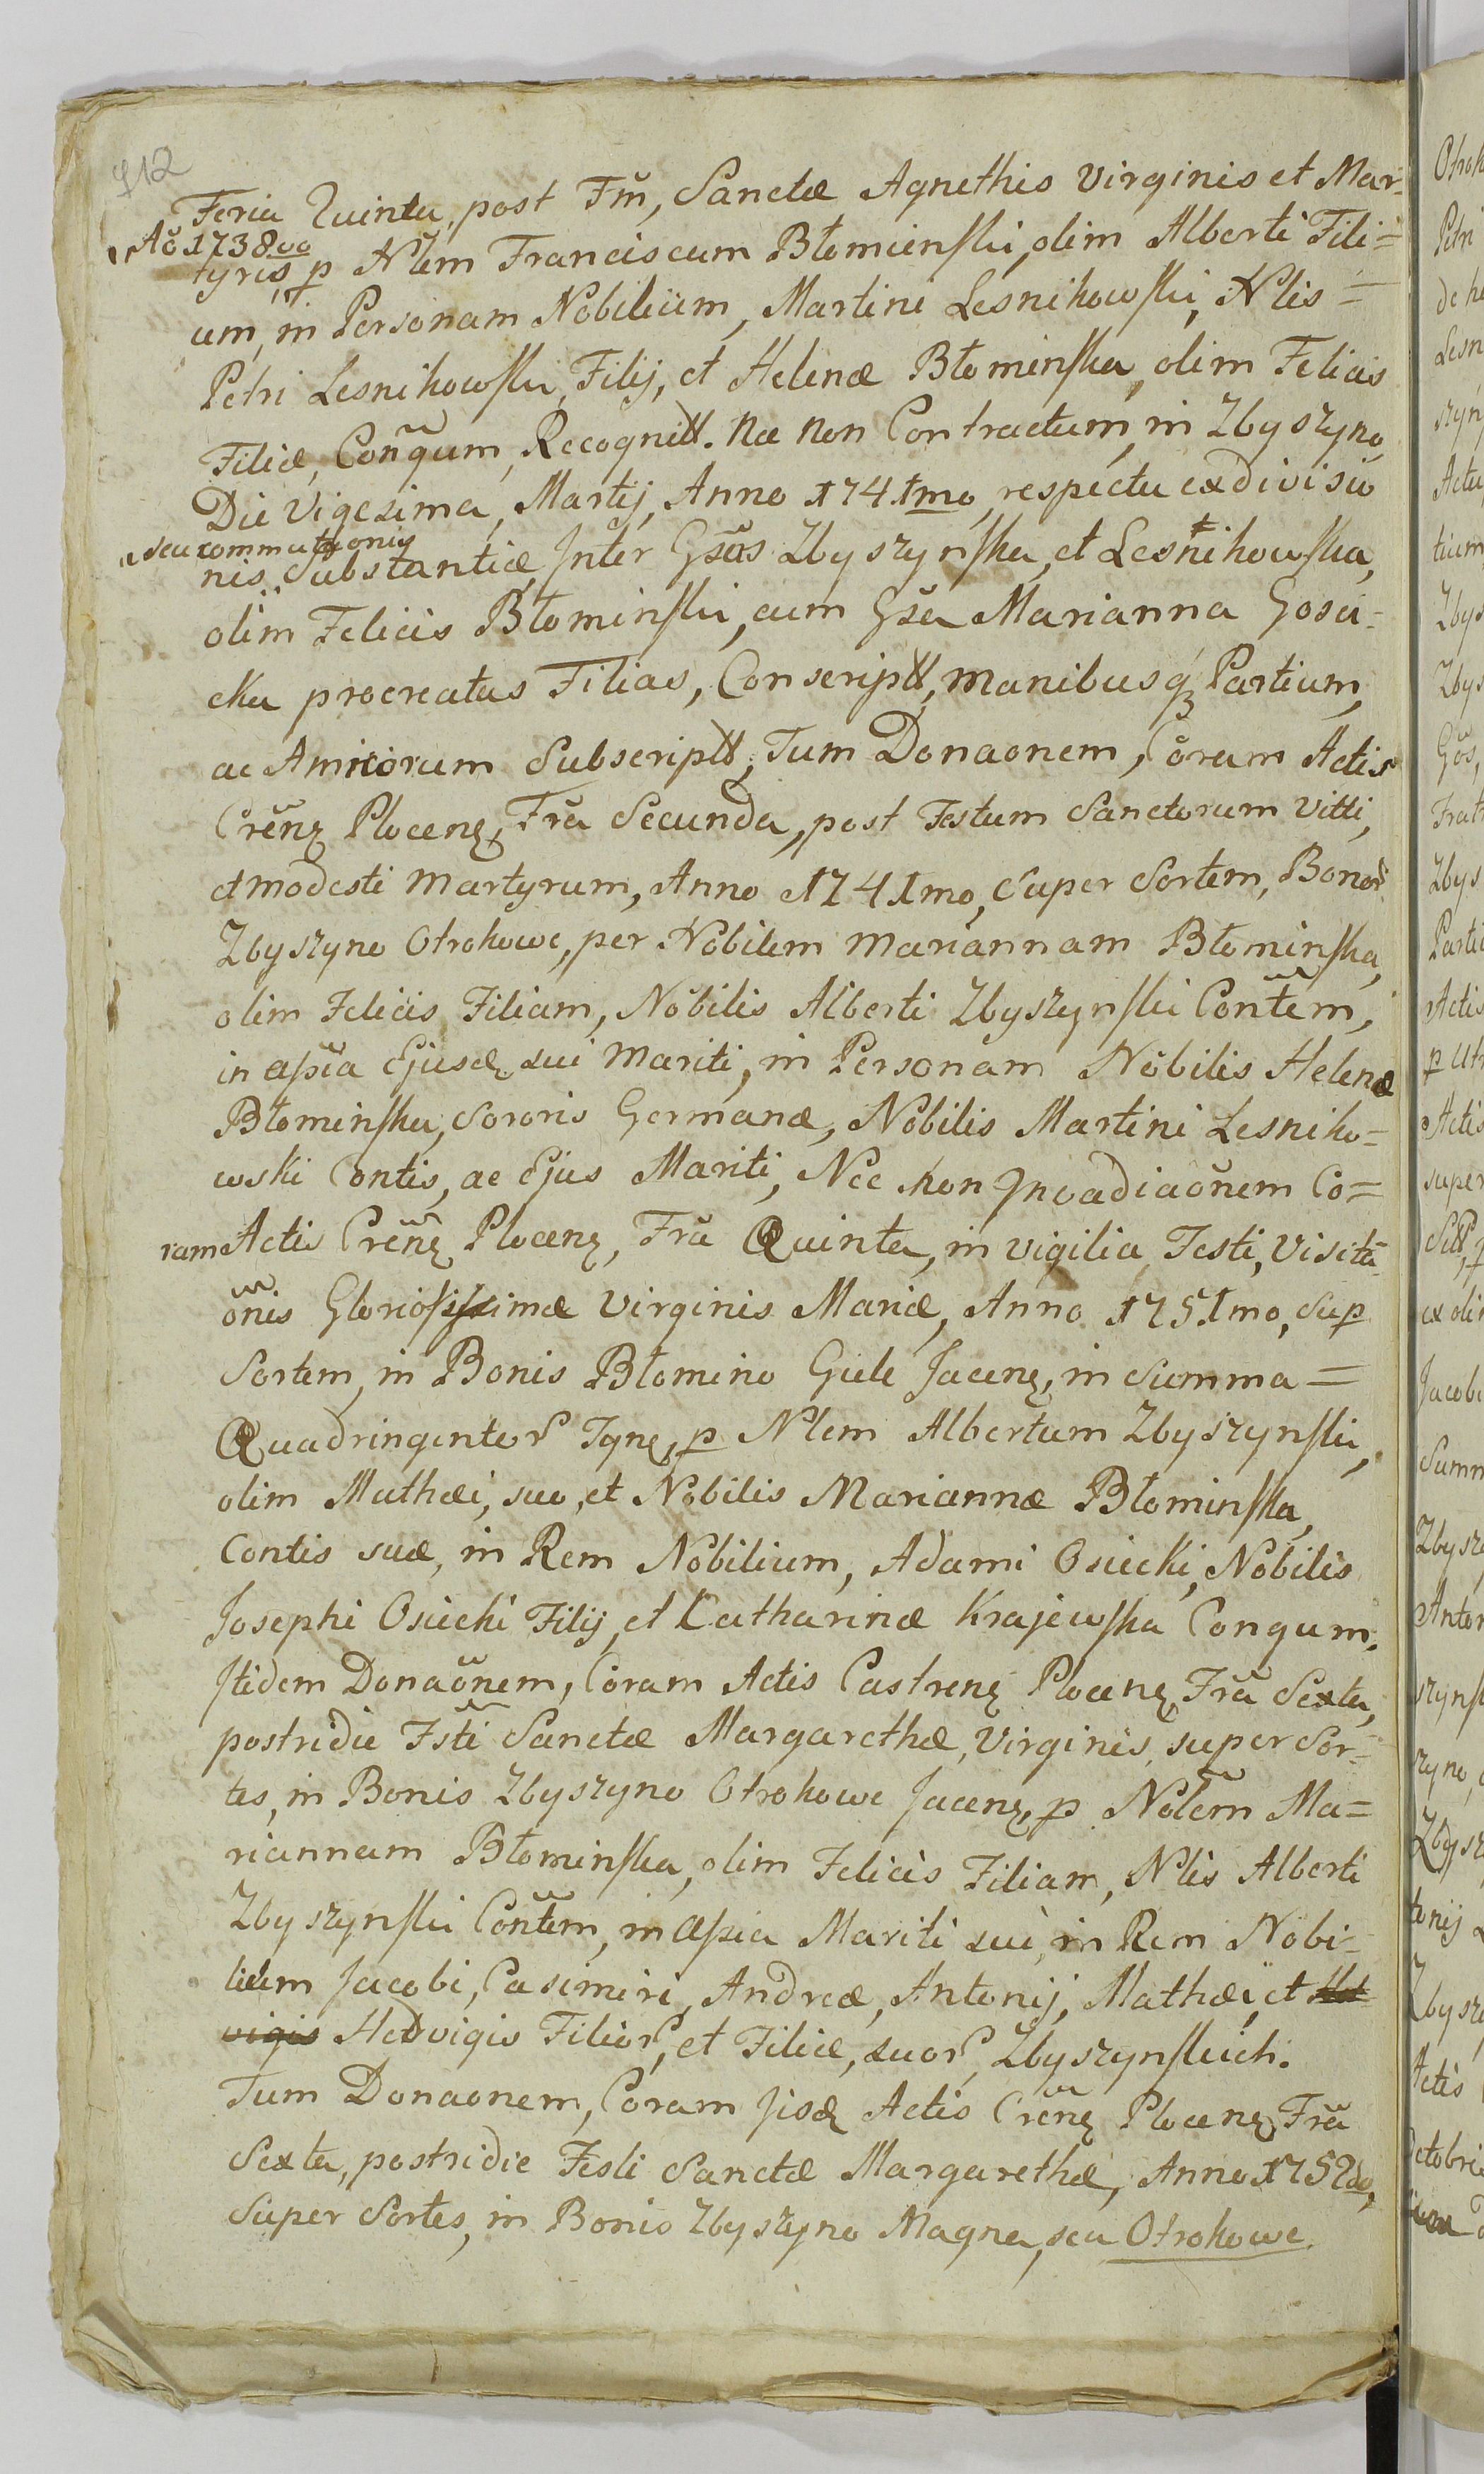 912
Feria Quinta, post Fm̃, Sanctæ Agnethis Virginis et Mar-
Aõ 1738vo
tyris, p Nlem Franciscum Błomienski, olim Alberti Fili=
um, in Personam Nobilium, Martini Lesnikowski, Nlis =
Petri Lesnikowski, Filij, et Helenæ Błominska, olim Felicis
Filiæ, Conõgum, Recognitt. Nec Non Contractum, in Zbyszyno,
Die Vigesima, Martij, Anno 1741mo, respectu exdivisio
seu commutõnis
nis, Substantiæ, Inter Gsas Zbyszynska, et Lesnikowska,
olim Felicis Błominski, cum Gsa Marianna Gosci=
cka procreatas Filias, Conscriptt, manibusq, Partium,
ac Amicorum Subscriptt, Tum Donaonem, Coram Actis
Crẽn, Plocen, Frã Secunda, post Festum Sanctorum Vitti,
et modesti Martyrum, Anno 1741mo, Super Sortem, Bonor
Zbyszyno Otrokowe, per Nobilem Mariannam Błominska,
olim Felicis Filiam, Nobilis Alberti Zbyszynski Contẽm,
in assia Ejusd, sui Mariti, in Personam Nobilis Helenæ
Błominska, Sororis Germanæ, Nobilis Martini Lesniko=
wski Contis, ac Ejus Mariti, Nec Non Invadiaõnem Co=
ram Actis Crẽn, Plocen, Frã Quinta, in vigilia Festi, Visita-
õnis Gloriosissimæ Virginis Mariæ, Anno 1751mo, Sup
Sortem, in Bonis Błomino Gule Jacen, in Summa =
Quadringentor Tgn, p Nlem Albertum Zbyszynski,
olim Mathæi, suo, et Nobilis Mariannæ Błominska,
Contis suæ, in Rem Nobilium, Adami Osiecki, Nobilis
Josephi Osiecki Filij, et Catharinæ Krajewska Congum.
Itidem Donaõnem, Coram Actis Castren, Plocen, Frã Sexta,
postridie Fstĩ Sanctæ Margarethæ, Virginis, super Sor-
tes, in Bonis Zbyszyno Otrokowe Jacen, p Nolem Ma=
riannam Błominska, olim Felicis Filiam, Nlis Alberti
Zbyszynski Contẽm, in assia Mariti sui, in Rem Nobi-
lium Jacobi, Casimiri, Andreæ, Antonij, Mathæi, et Hed
vigis Hedvigis Filior, et Filiæ, suor, Zbyszynskich.
Tum Donaonem, Coram Iisd, Actis Crẽn, Plocen, Frã
Sexta, postridie Festi Sanctæ Margarethæ, Anno 1752do,
Super Sortes, in Bonis Zbyszyno Magna, seu Otrokowe.